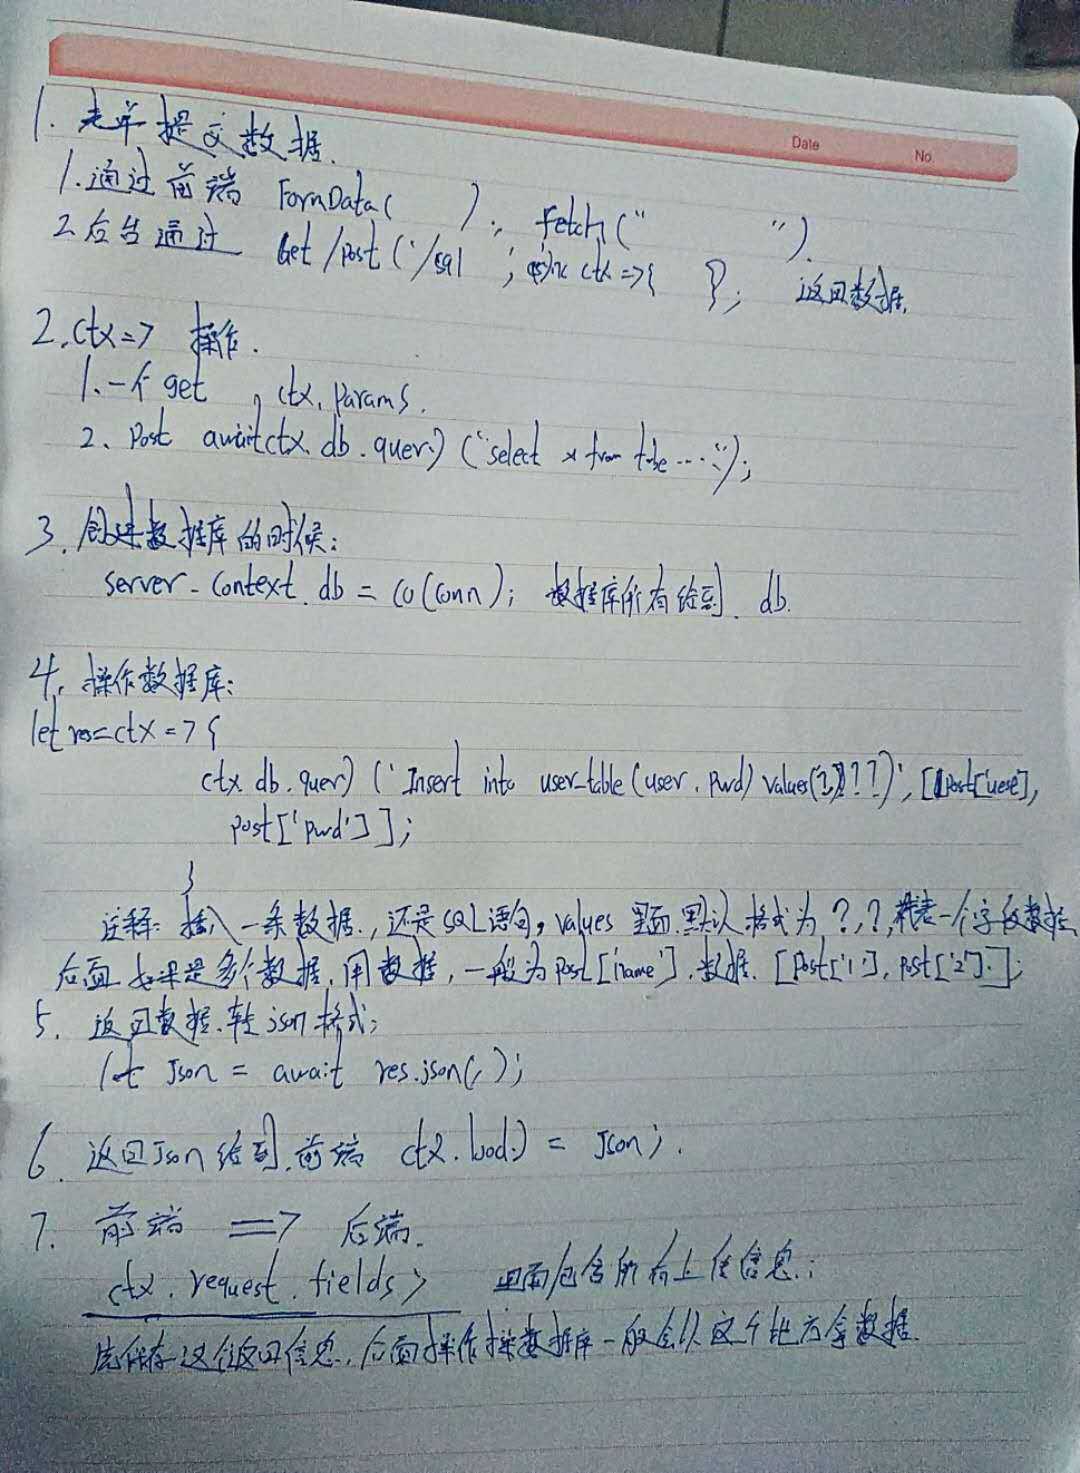 Date No.
1. 表单提交数据.
1.通过前端 FormData( ); fetch(" ").
2.后台通过 Get/post('/sql ', async ctx=>{ }); 返回数据.
2.ctx=> 操作.
1.一个get , ctx.params.
2、Post await ctx.db.query("select * from table ...");
3.创建数据库的时候:
server.context.db = co(conn); 数据库所有给到 db.
4.操作数据库:
let res=ctx=>{
ctx.db.query('Insert into user_table(user,pwd) values(??)', [post['user'],
post['pwd']];
}
注释: 插入一条数据,还是SQL语句,values 里面默认格式为 ?,?,代表一个字段数据
后面如果是多个数据,用数据,一般为post['name'].数据.[post['1'],post['2']];
5.返回数据.转json格式;
let Json = await res.json();
6.返回Json给到.前端 ctx.body = Json;.
7.前端 => 后端.
ctx.request.fields> 里面包含所有上传信息;
先保存这个返回信息.后面操作数据库一般会从这个地方拿数据.